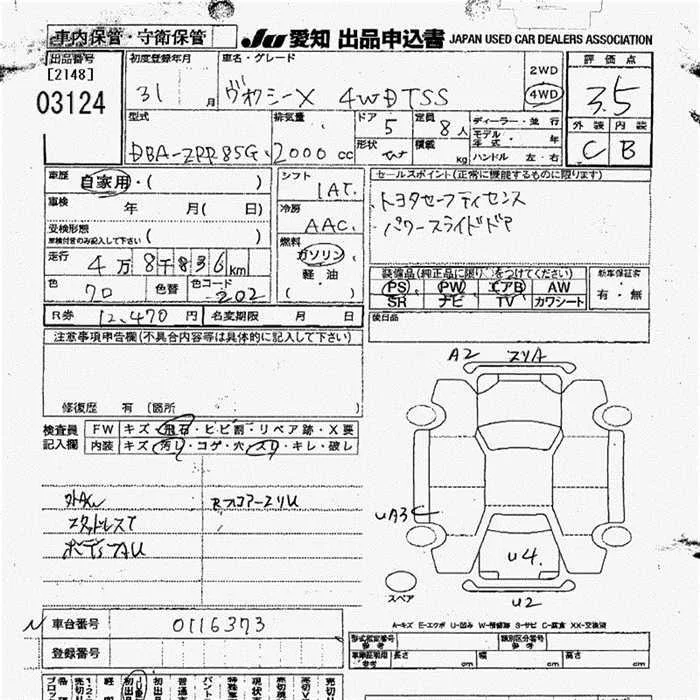 車内保管・守衛保管
JU 愛知 出品申込書 JAPAN USED CAR DEALERS ASSOCIATION
出品番号
[2148]
03124
初度登録年月
31 月
車名・グレード
ヴォクシーX 4WDTSS
2WD
4WD
評価点
3.5
外装 内装
C B
型式
DBA-ZRR85G
排気量
2000 cc
ドア
5
定員
8人
形状
積載
kg
ディーラー・並行
モデル年式・ 年
ハンドル 左・右
車歴
自家用・( )
車検 年 月( 日)
受検形態
車検付きのみ記入して下さい ( )
走行
4万8千836km
色 色替 色コード
クロ 202
シフト
IAT.
冷房
AAC.
燃料
ガソリン
軽油
( )
セールスポイント(正常に機能するものに限ります)
トヨタセーフティセンス
パワースライドドア
装備品(純正品に限り、○をつけてください)
PS PW エアB AW
SR ナビ TV カワシート
新車保証書
有・無
R券 12,470円 名変期限 月 日
後日品
注意事項申告欄(不具合内容等は具体的に記入して下さい)
修復歴 有 (箇所 )
検査員
記入欄
FW キズ・飛石・ヒビ割・リペア跡・X要
内装 キズ・汚レ・コゲ・穴・スリ・キレ・破レ
外AW
スタッドレスT
ボディAU
RフロアースリU
A2 スリA
UA3C
U4.
U2
スペア
A-キズ E-エクボ U-凹み W-補修跡 S-サビ C-腐食 XX-交換済
車台番号 0116373
登録番号
型式指定番号 参考
類別区分番号 参考
車庫証明用 参考 長さ cm 幅 cm 高さ cm